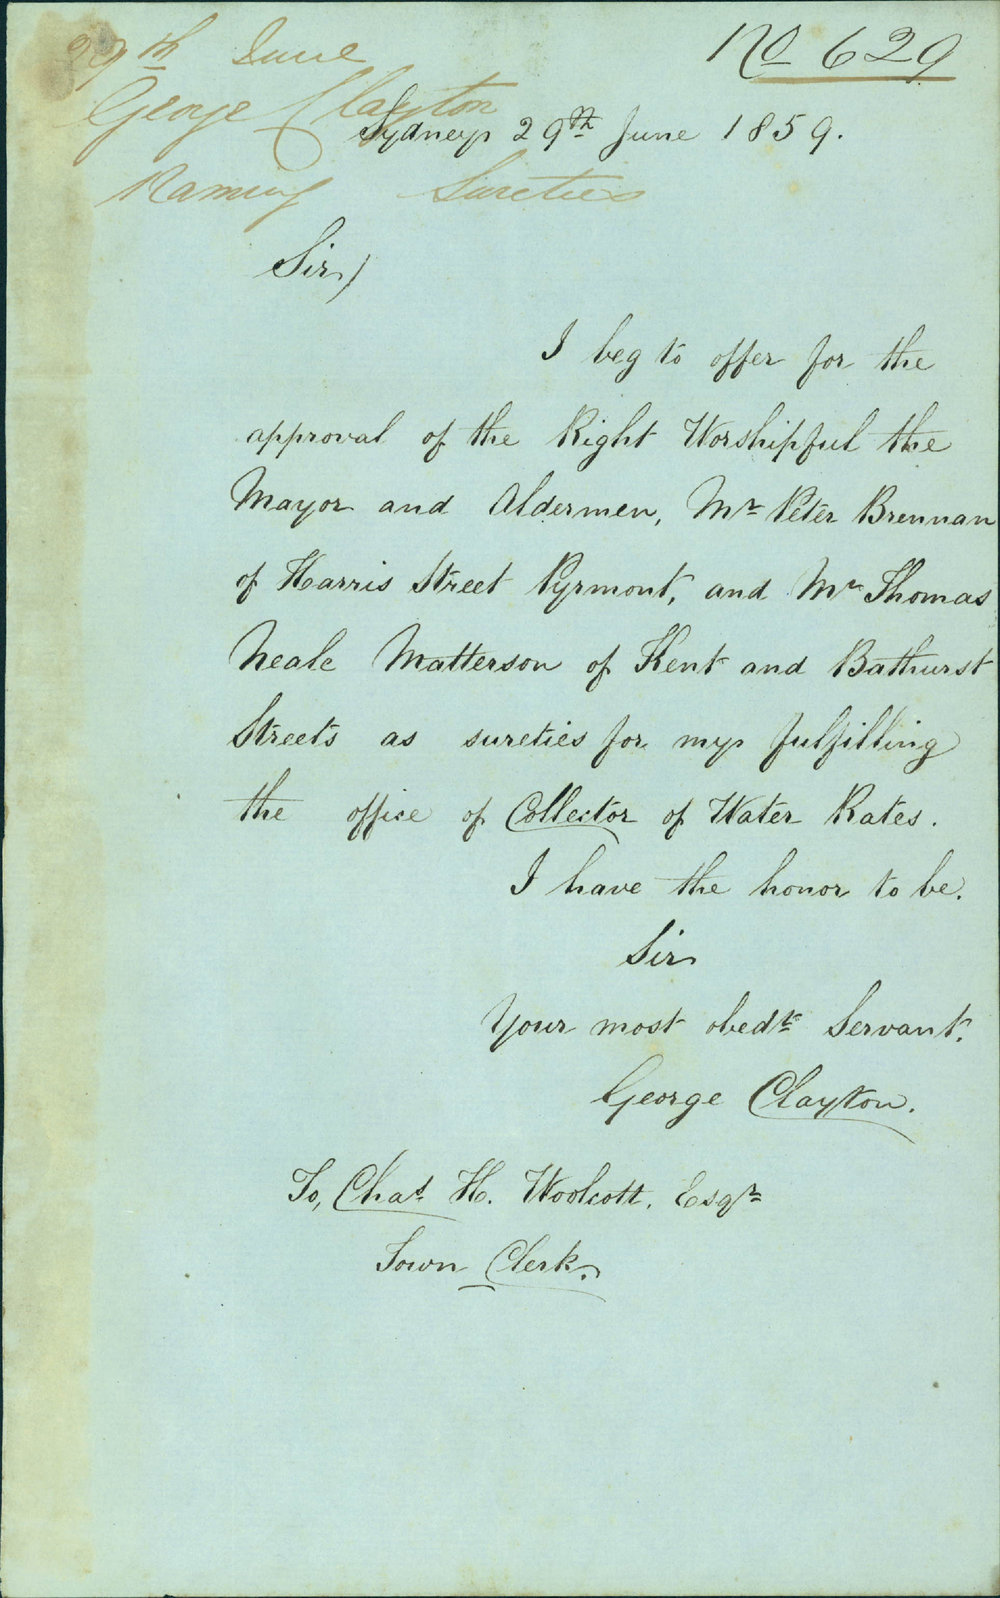 29th June
No 629
George Clayton
Sydney 29th June 1859.
Naming Sureties
Sir,
I beg to offer for the
approval of the Right Worshipful the
Mayor and Aldermen, Mr Peter Brennan
of Harris Street Pyrmont, and Mr Thomas
Neale Matterson of Kent and Bathurst
Streets as sureties for my fulfilling
the office of Collector of Water Rates.
I have the honor to be.
Sir
Your most obedt Servant.
George Clayton.
To, Chas H. Woolcott. Esqr
Town Clerk.